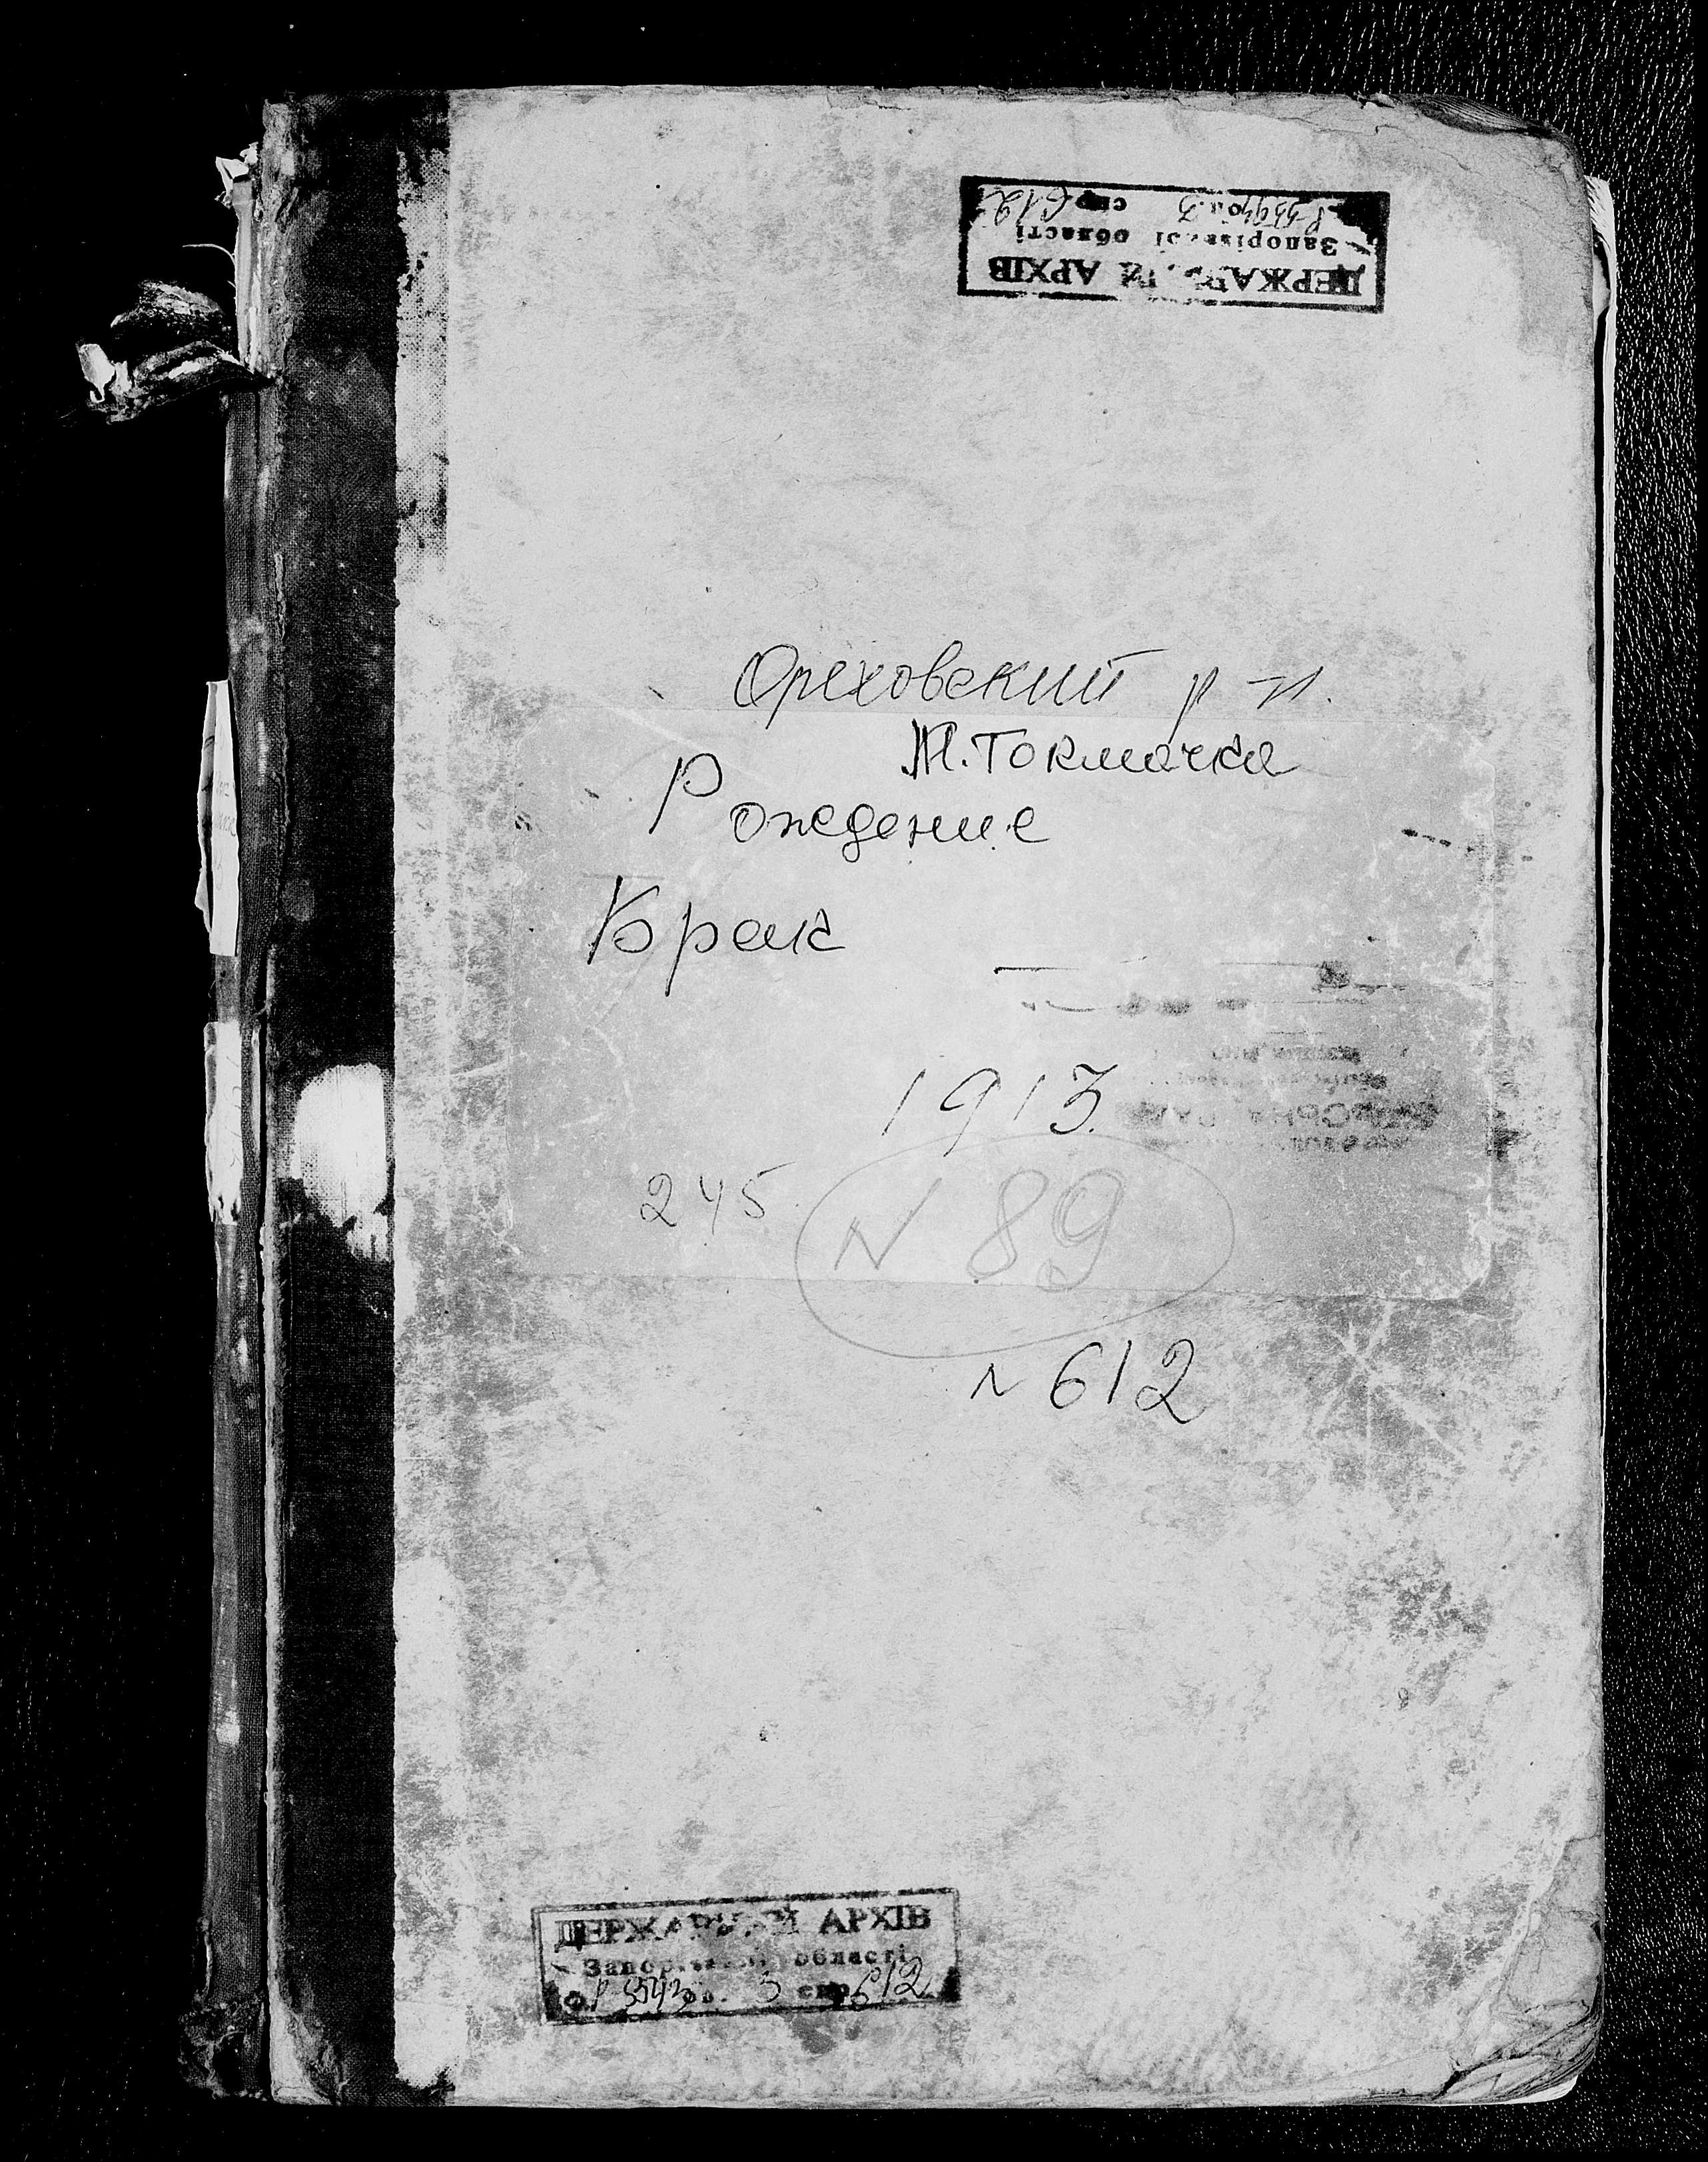 ДЕРЖАВНИЙ АРХІВ
Запорізької області
спр 612
Ореховский р-н.
М. Токмачка
Рождение
Брак
1913.
245.
N 89
N 612
ДЕРЖАВНИЙ АРХІВ
Запорізької області
Ф.Р 5543 оп. 3 спр 612